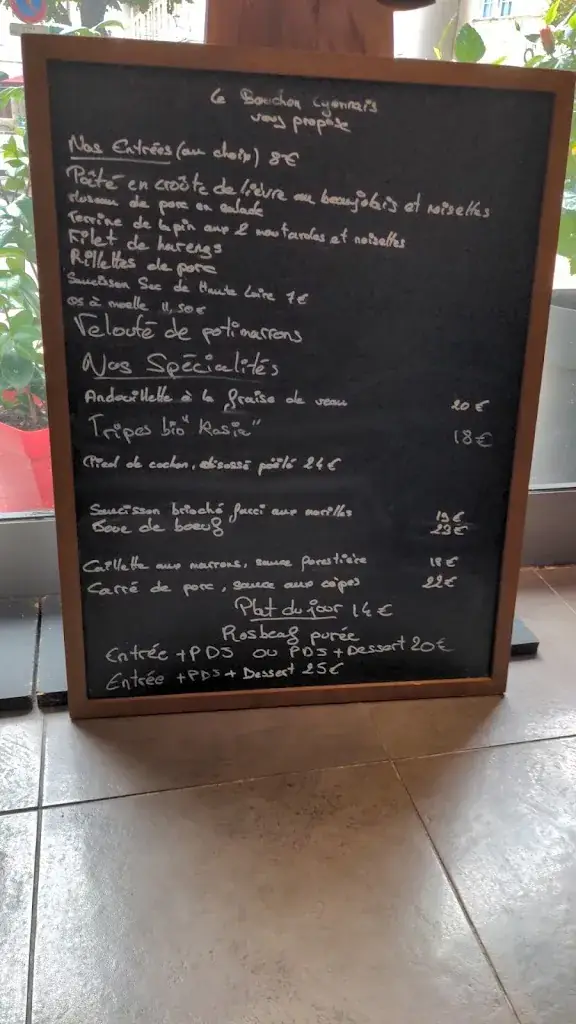 Le Bouchon Lyonnais
vous propose
Nos Entrées (au choix) 8€
Pâté en croûte de lièvre au beaujolais et noisettes
Museau de porc en salade
Terrine de lapin aux 2 moutardes et noisettes
Filet de harengs
Rillettes de porc
Saucisson Sec de Haute Loire 7€
os à moelle 11,50€
Velouté de potimarrons
Nos Spécialités
Andouillette à la fraise de veau 20€
Tripes bio "Rosie" 18€
Pied de cochon, désossé poêlé 24€
Saucisson brioché farci aux morilles 19€
Joue de boeuf 23€
Caillette aux marrons, sauce forestière 18€
Carré de porc, sauce aux cèpes 22€
Plat du jour 14€
Rosbeaf purée
Entrée + PDJ ou PDJ + Dessert 20€
Entrée + PDJ + Dessert 25€